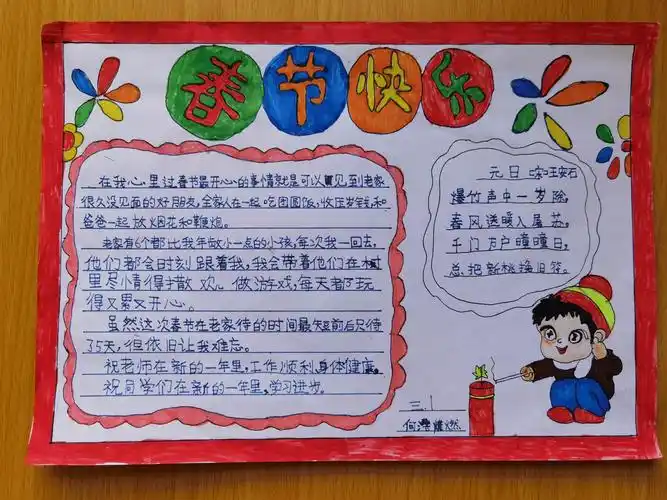 春节快乐
在我心里过春节最开心的事情就是可以见到老家
很久没见面的好朋友,全家人在一起吃团圆饭,收压岁钱,和
爸爸一起放烟花和鞭炮。
老家有6个都比我年龄小一点的小孩,每次我一回去,
他们都会时刻跟着我,我会带着他们在村
里尽情得撒欢做游戏,每天都玩
得又累又开心。
虽然这次春节在老家待的时间最短前后只待
35天,但依旧让我难忘。
祝老师在新的一年里,工作顺利,身体健康。
祝同学们在新的一年里,学习进步。
元日 宋 王安石
爆竹声中一岁除,
春风送暖入屠苏,
千门万户曈曈日,
总把新桃换旧符。
三.1
何